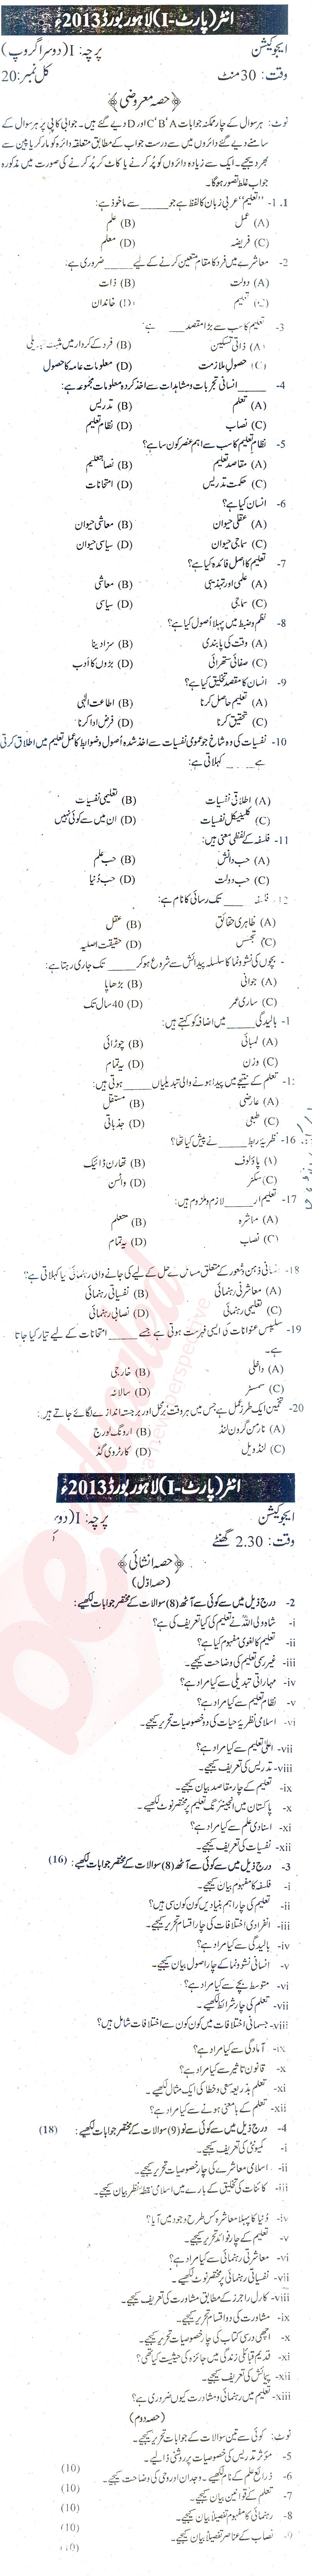 انٹر (پارٹ-I) لاہور بورڈ 2013ء
ایجوکیشن پرچہ: I (دوسرا گروپ)
وقت: 30 منٹ کل نمبر: 20
﴿حصہ معروضی﴾
نوٹ: ہر سوال کے چار ممکنہ جوابات A، B، C اور D دیے گئے ہیں۔ جوابی کاپی پر ہر سوال کے
سامنے دیے گئے دائروں میں سے درست جواب کے مطابق متعلقہ دائرہ کو مارکر یا پین سے
بھر دیجیے۔ ایک سے زیادہ دائروں کو پُر کرنے یا کاٹ کر پُر کرنے کی صورت میں مذکورہ
جواب غلط تصور ہوگا۔
1. 1- "تعلیم" عربی زبان کا لفظ ہے جو ____ سے ماخوذ ہے:
(A) عمل (B) علم
(C) فریضہ (D) معلم
2- معاشرے میں فرد کا مقام متعین کرنے کے لیے ____ ضروری ہے:
(A) دولت (B) ذات
(C) تعلیم (D) خاندان
3- تعلیم کا سب سے بڑا مقصد ____ ہے:
(A) ذاتی تسکین (B) فرد کے کردار میں مثبت تبدیلی
(C) حصولِ ملازمت (D) معلومات عامہ کا حصول
4- ____ انسانی تجربات و مشاہدات سے اخذ کردہ معلومات کا مجموعہ ہے:
(A) تعلم (B) تدریس
(C) نصاب (D) نظام تعلیم
5- نظامِ تعلیم کا سب سے اہم عنصر کون سا ہے؟
(A) مقاصد تعلیم (B) نصابِ تعلیم
(C) حکمت تدریس (D) امتحانات
6- انسان کیا ہے؟
(A) عقلی حیوان (B) معاشی حیوان
(C) سماجی حیوان (D) سیاسی حیوان
7- تعلیم کا اصل فائدہ کیا ہے؟
(A) علمی اور تہذیبی (B) معاشی
(C) سماجی (D) سیاسی
8- نظم و ضبط میں پہلا اُصول کیا ہے؟
(A) وقت کی پابندی (B) سزا دینا
(C) صفائی ستھرائی (D) بڑوں کا ادب
9- انسان کا مقصد تخلیق کیا ہے؟
(A) تعلیم حاصل کرنا (B) اطاعت الٰہی
(C) تحقیق کرنا (D) فرض ادا کرنا
10- نفسیات کی وہ شاخ جو عمومی نفسیات سے اخذ شدہ اُصول و ضوابط کا عمل تعلیم میں اطلاق کرتی
ہے ____ کہلاتی ہے:
(A) اطلاقی نفسیات (B) تعلیمی نفسیات
(C) کلینیکل نفسیات (D) ان میں سے کوئی نہیں
11- فلسفہ کے لفظی معنی ہیں:
(A) حب دانش (B) حب علم
(C) حب دولت (D) حب دُنیا
12- فلسفہ ____ تک رسائی کا نام ہے:
(A) ظاہری حقائق (B) عقل
(C) تجسس (D) حقیقت اصلیہ
- بچوں کی نشوونما کا سلسلہ پیدائش سے شروع ہو کر ____ تک جاری رہتا ہے:
(A) جوانی (B) بڑھاپا
(C) ساری عمر (D) 40 سال تک
1- بالیدگی ____ میں اضافہ کو کہتے ہیں:
(A) لمبائی (B) چوڑائی
(C) وزن (D) یہ تمام
1- تعلم کے نتیجے میں پیدا ہونے والی تبدیلیاں ____ ہوتی ہیں:
(A) عارضی (B) مستقل
(C) طبعی (D) جذباتی
16- نظریہ ربط ____ نے پیش کیا تھا؟
(A) پاولوف (B) تھارن ڈائیک
(C) سکنر (D) واٹسن
17- تعلیم اور ____ لازم و ملزوم ہیں:
(A) معاشرہ (B) متعلم
(C) نصاب (D) یہ تمام
18- انسانی ذہن و شعور کے متعلق مسائل کے حل کے لیے کی جانے والی رہنمائی کیا کہلاتی ہے؟
(A) معاشرتی رہنمائی (B) نفسیاتی رہنمائی
(C) تعلیمی رہنمائی (D) نصابی رہنمائی
19- سلیبس عنوانات کی ایسی فہرست ہوتی ہے جسے ____ امتحانات کے لیے تیار کیا جاتا
ہے۔
(A) داخلی (B) خارجی
(C) سمسٹر (D) سالانہ
20- تخمین ایک طرزِ عمل ہے جس میں ہر وقت برمحل اور برجستہ اندازے لگائے جاتے ہیں:
(A) نارمن گرون لنڈ (B) ارونگ لورج
(C) لنڈویل (D) کارٹروی گڈ
انٹر (پارٹ-I) لاہور بورڈ 2013ء
ایجوکیشن پرچہ: I (دو
وقت: 2.30 گھنٹے
﴿حصہ انشائی﴾
(حصہ اوّل)
2- درج ذیل میں سے کوئی سے آٹھ (8) سوالات کے مختصر جوابات لکھیے:
i- شاہ ولی اللہؒ نے تعلیم کی کیا تعریف کی ہے؟
ii- تعلیم کا لغوی مفہوم کیا ہے؟
iii- غیر رسمی تعلیم کی وضاحت کیجیے۔
iv- مہاراتی تبدیلی سے کیا مراد ہے؟
v- نظامِ تعلیم سے کیا مراد ہے؟
vi- اسلامی نظریہ حیات کی دو خصوصیات تحریر کیجیے۔
vii- اعلیٰ تعلیم سے کیا مراد ہے؟
viii- تدریس کی تعریف کیجیے۔
ix- تعلیم کے چار مقاصد بیان کیجیے۔
x- پاکستان میں انجینئرنگ تعلیم پر مختصر نوٹ لکھیے۔
xi- اسنادی علم سے کیا مراد ہے؟
xii- نفسیات کی تعریف کیجیے۔
3- درج ذیل میں سے کوئی سے آٹھ (8) سوالات کے مختصر جوابات لکھیے: (16)
i- فلسفہ کا مفہوم بیان کیجیے۔
ii- تعلیم کی چار اہم بنیادیں کون کون سی ہیں؟
iii- انفرادی اختلافات کی چار اقسام تحریر کیجیے۔
iv- بالیدگی سے کیا مراد ہے؟
v- انسانی نشوونما کے چار اصول بیان کیجیے۔
vi- متوسط بچے سے کیا مراد ہے؟
vii- تعلم کی چار شرائط لکھیے۔
viii- جسمانی اختلافات میں کون کون سے اختلافات شامل ہیں؟
ix- آمادگی سے کیا مراد ہے؟
x- قانون تاثیر سے کیا مراد ہے؟
xi- تعلم بذریعہ سعی و خطا کی ایک مثال لکھیے۔
xii- تعلم کے بامعنی ہونے سے کیا مراد ہے؟
4- درج ذیل میں سے کوئی سے نو (9) سوالات کے مختصر جوابات لکھیے: (18)
i- کمیونٹی کی تعریف کیجیے۔
ii- اسلامی معاشرے کی چار خصوصیات تحریر کیجیے۔
iii- کائنات کی تخلیق کے بارے میں اسلامی نقطۂ نظر بیان کیجیے۔
iv- دُنیا کا پہلا معاشرہ کس طرح وجود میں آیا؟
v- تعلیم کے چار فوائد تحریر کیجیے۔
vi- معاشرتی رہنمائی سے کیا مراد ہے؟
vii- نفسیاتی رہنمائی پر مختصر نوٹ لکھیے۔
viii- کارل راجرز کے مطابق مشاورت کی تعریف کیجیے۔
ix- مشاورت کی دو اقسام تحریر کیجیے۔
x- اچھی درسی کتاب کی چار خصوصیات تحریر کیجیے۔
xi- قدیم قبائلی زندگی میں جائزہ کی حیثیت کیا تھی؟
xii- پیمائش کی تعریف کیجیے۔
xiii- تعلیم میں رہنمائی و مشاورت کیوں ضروری ہے؟
(حصہ دوم)
نوٹ: کوئی سے تین سوالات کے جوابات تحریر کیجیے۔
5- مؤثر تدریس کی خصوصیات پر روشنی ڈالیے۔ (10)
6- ذرائع علم کے نام لکھیے۔ وجدان اور وحی کی وضاحت کیجیے۔ (10)
7- تعلم کے قوانین بیان کیجیے۔ (10)
8- رہنمائی کا مفہوم تفصیلاً بیان کیجیے۔ (10)
9- نصاب کے عناصر تفصیلاً بیان کیجیے۔ (10)